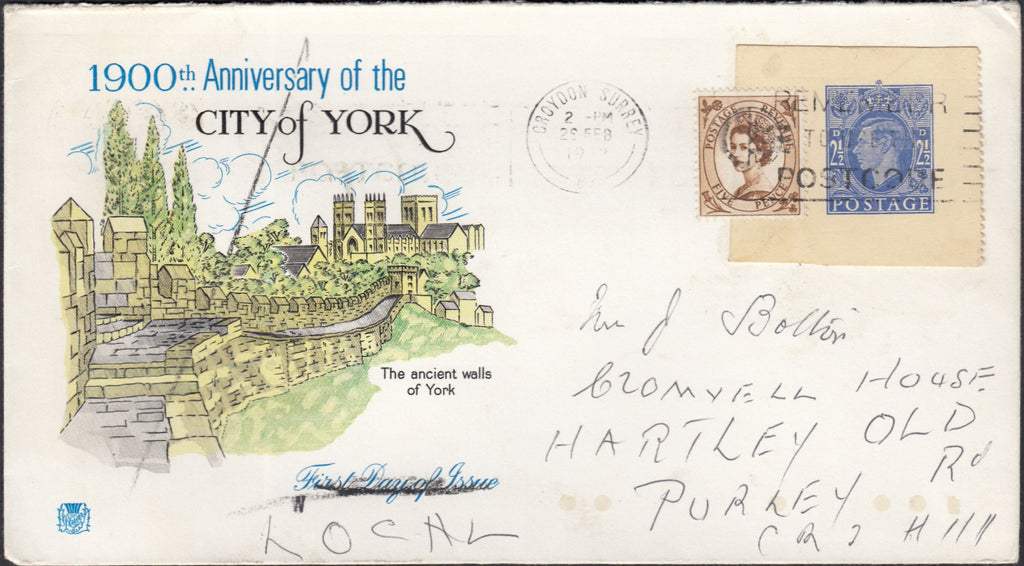 1900th Anniversary of the
CITY of YORK
The ancient walls
of York
First Day of Issue
LOCAL
CROYDON SURREY
2 - PM
28 FEB
19
POSTAGE REVENUE
FIVE PENCE
REMEMBER
TO USE
POSTCODE
2½ D 2½ D
POSTAGE
J Bolton
CROMWELL HOUSE
HARTLEY OLD
Rd
PURLEY
CR2